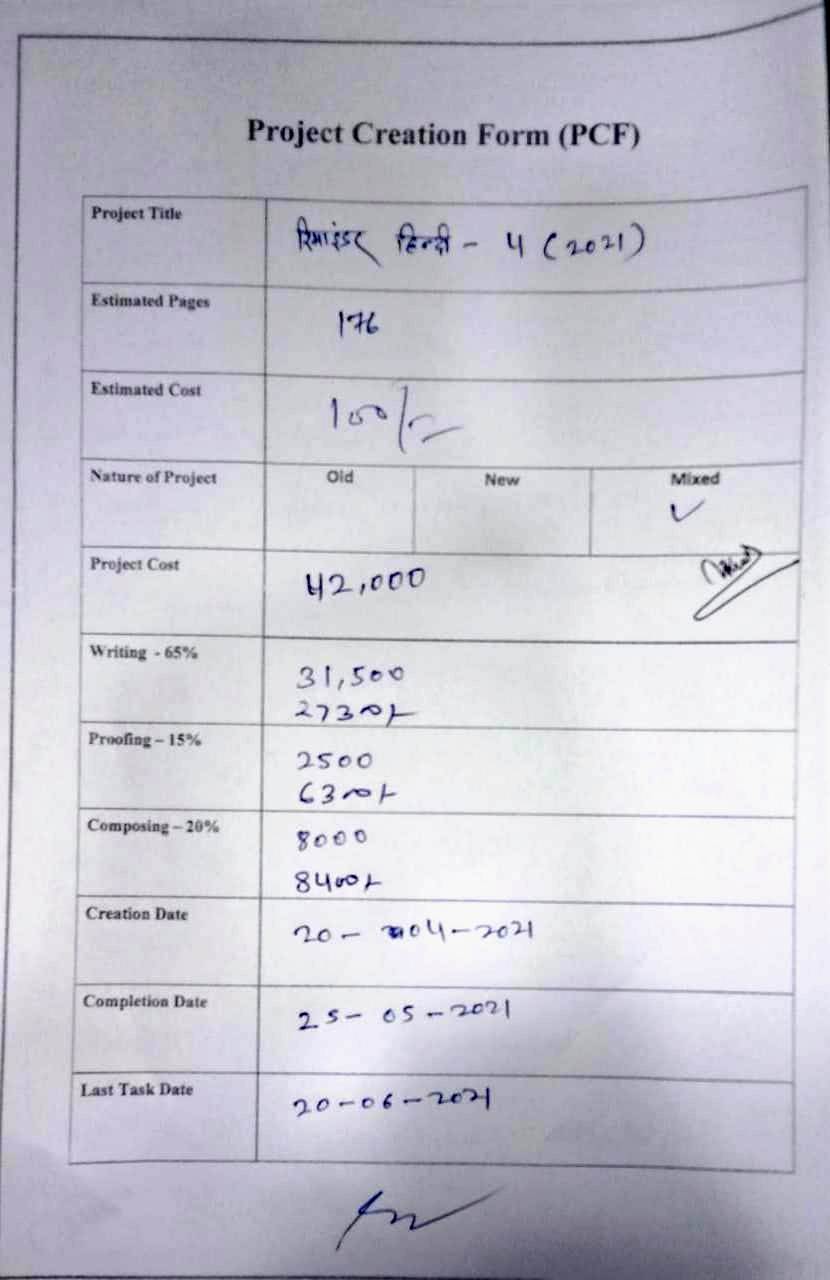 Project Creation Form (PCF)
Project Title
रिमाइंडर हिन्दी - 4 (2021)
Estimated Pages
176
Estimated Cost
100/-
Nature of Project
Old New Mixed
✓
Project Cost
42,000
Writing - 65%
31,500
27300/-
Proofing – 15%
2500
6300/-
Composing – 20%
8000
8400/-
Creation Date
20 - 04 - 2021
Completion Date
25 - 05 - 2021
Last Task Date
20 - 06 - 2021